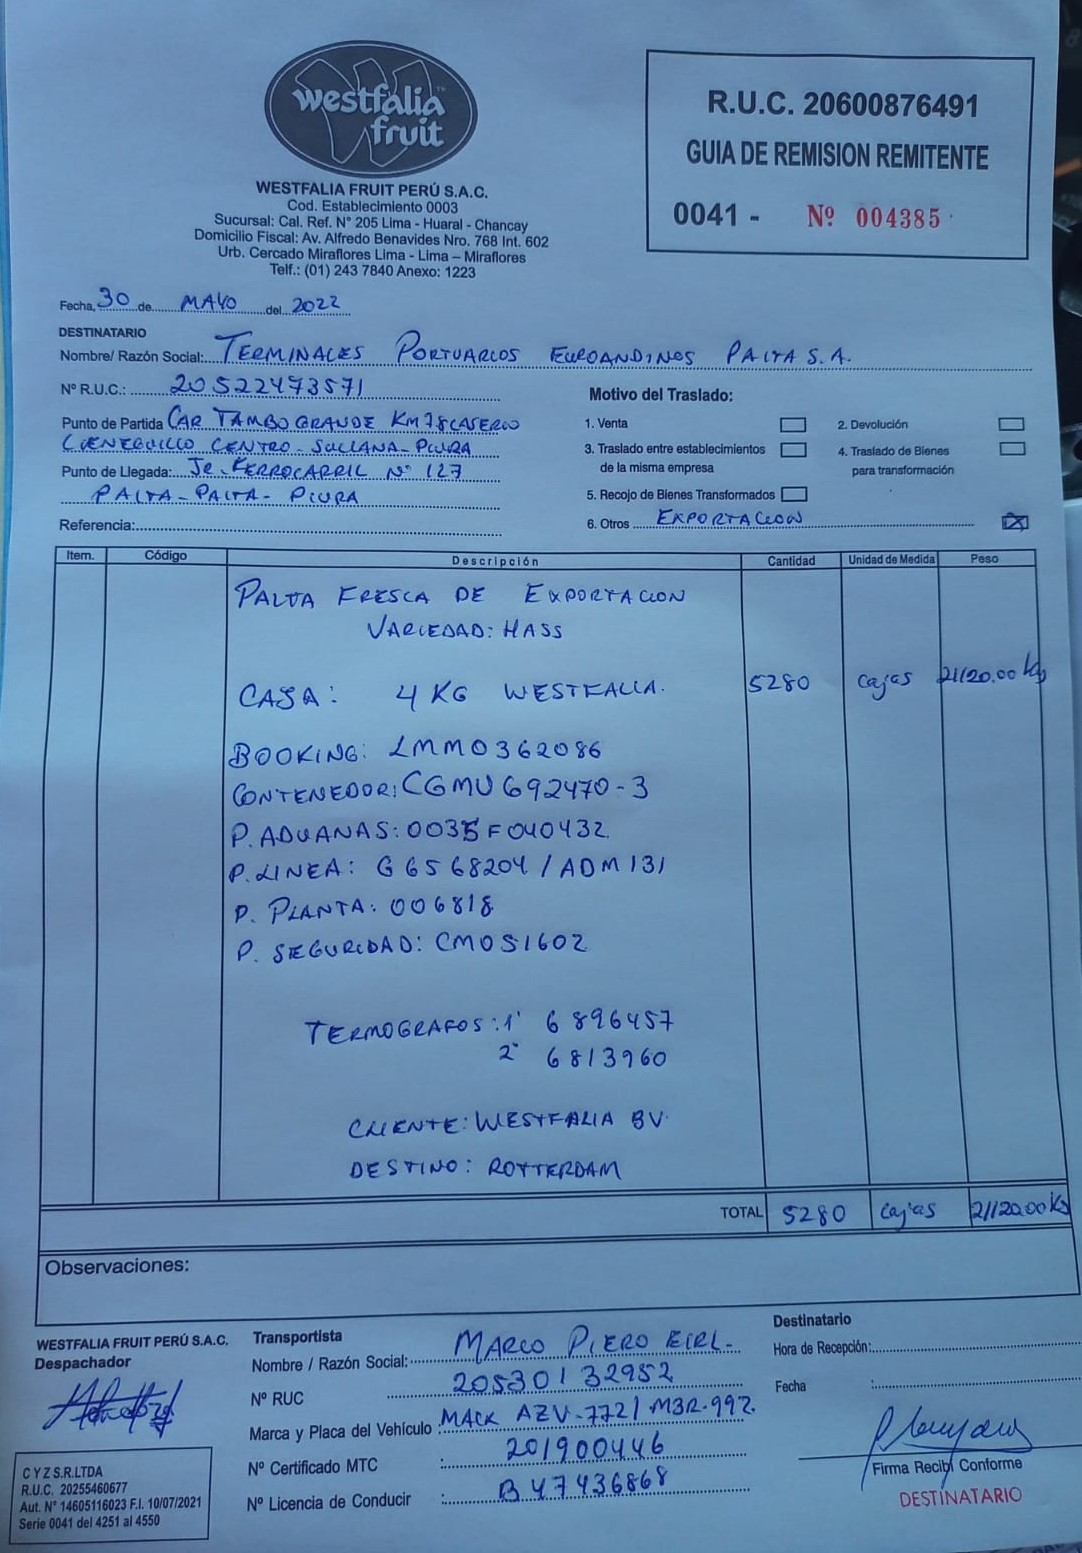 westfalia
fruit
WESTFALIA FRUIT PERÚ S.A.C.
Cod. Establecimiento 0003
Sucursal: Cal. Ref. N° 205 Lima - Huaral - Chancay
Domicilio Fiscal: Av. Alfredo Benavides Nro. 768 Int. 602
Urb. Cercado Miraflores Lima - Lima – Miraflores
Telf.: (01) 243 7840 Anexo: 1223
R.U.C. 20600876491
GUIA DE REMISION REMITENTE
0041 - Nº 004385
Fecha, 30 de MAYO del 2022
DESTINATARIO
Nombre/ Razón Social: TERMINALES PORTUARIOS EUROANDINOS PAITA S.A.
N° R.U.C.: 20522473571
Punto de Partida CAR TAMBOGRANDE KM78CASERIO
CIENEGUILLO CENTRO-SULLANA-PIURA
Punto de Llegada: Jr. FERROCARRIL N° 127
PAITA-PAITA-PIURA
Referencia:
Motivo del Traslado:
1. Venta
2. Devolución
3. Traslado entre establecimientos
de la misma empresa
4. Traslado de Bienes
para transformación
5. Recojo de Bienes Transformados
6. Otros EXPORTACION X
Item. Código Descripción Cantidad Unidad de Medida Peso
PALTA FRESCA DE EXPORTACION
VARIEDAD: HASS
CAJA: 4 KG WESTFALIA. 5280 cajas 21120.00 Kg
BOOKING: LMM0362086
CONTENEDOR: CGMU 692470-3
P. ADUANAS: 0035F040432
P. LINEA: G6568204 / ADM131
P. PLANTA: 006818
P. SEGURIDAD: CM051602
TERMOGRAFOS: 1° 6896457
2° 6813960
CLIENTE: WESTFALIA BV.
DESTINO: ROTTERDAM
TOTAL 5280 cajas 21120.00 Kg
Observaciones:
WESTFALIA FRUIT PERÚ S.A.C.
Despachador
C Y Z S.R.LTDA
R.U.C. 20255460677
Aut. N° 14605116023 F.I. 10/07/2021
Serie 0041 del 4251 al 4550
Transportista
Nombre / Razón Social: MARCO PIERO EIRL-
Nº RUC 20530132952
Marca y Placa del Vehículo : MACK AZV-772/ M3R-992.
Nº Certificado MTC : 201900446
Nº Licencia de Conducir : B47436868
Destinatario
Hora de Recepción:
Fecha :
Firma Recibí Conforme
DESTINATARIO